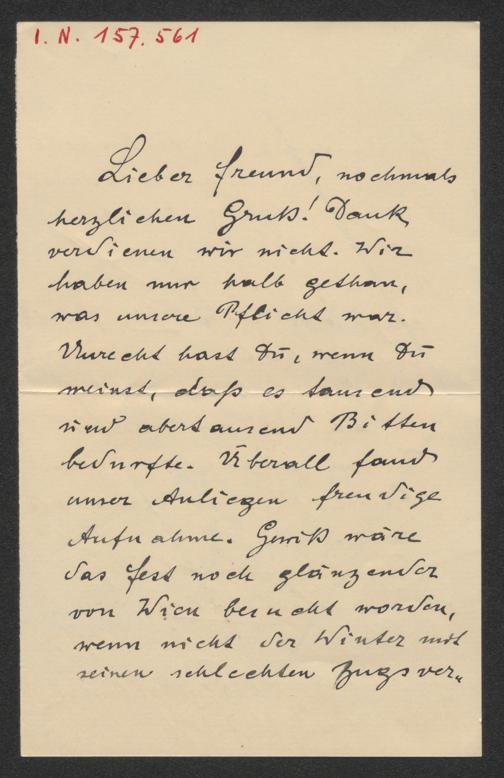 I. N. 157.561
Lieber Freund, nochmals
herzlichen Gruß! Dank
verdienen wir nicht. Wir
haben nur halb gethan,
was unsere Pflicht war.
Unrecht hast Du, wenn Du
meinst, daß es tausend
und abertausend Bitten
bedurfte. Überall fand
unser Anliegen freudige
Aufnahme. Gewiß wäre
das Fest noch glänzender
von Wien besucht worden,
wenn nicht der Winter mit
seinen schlechten Zugsver„